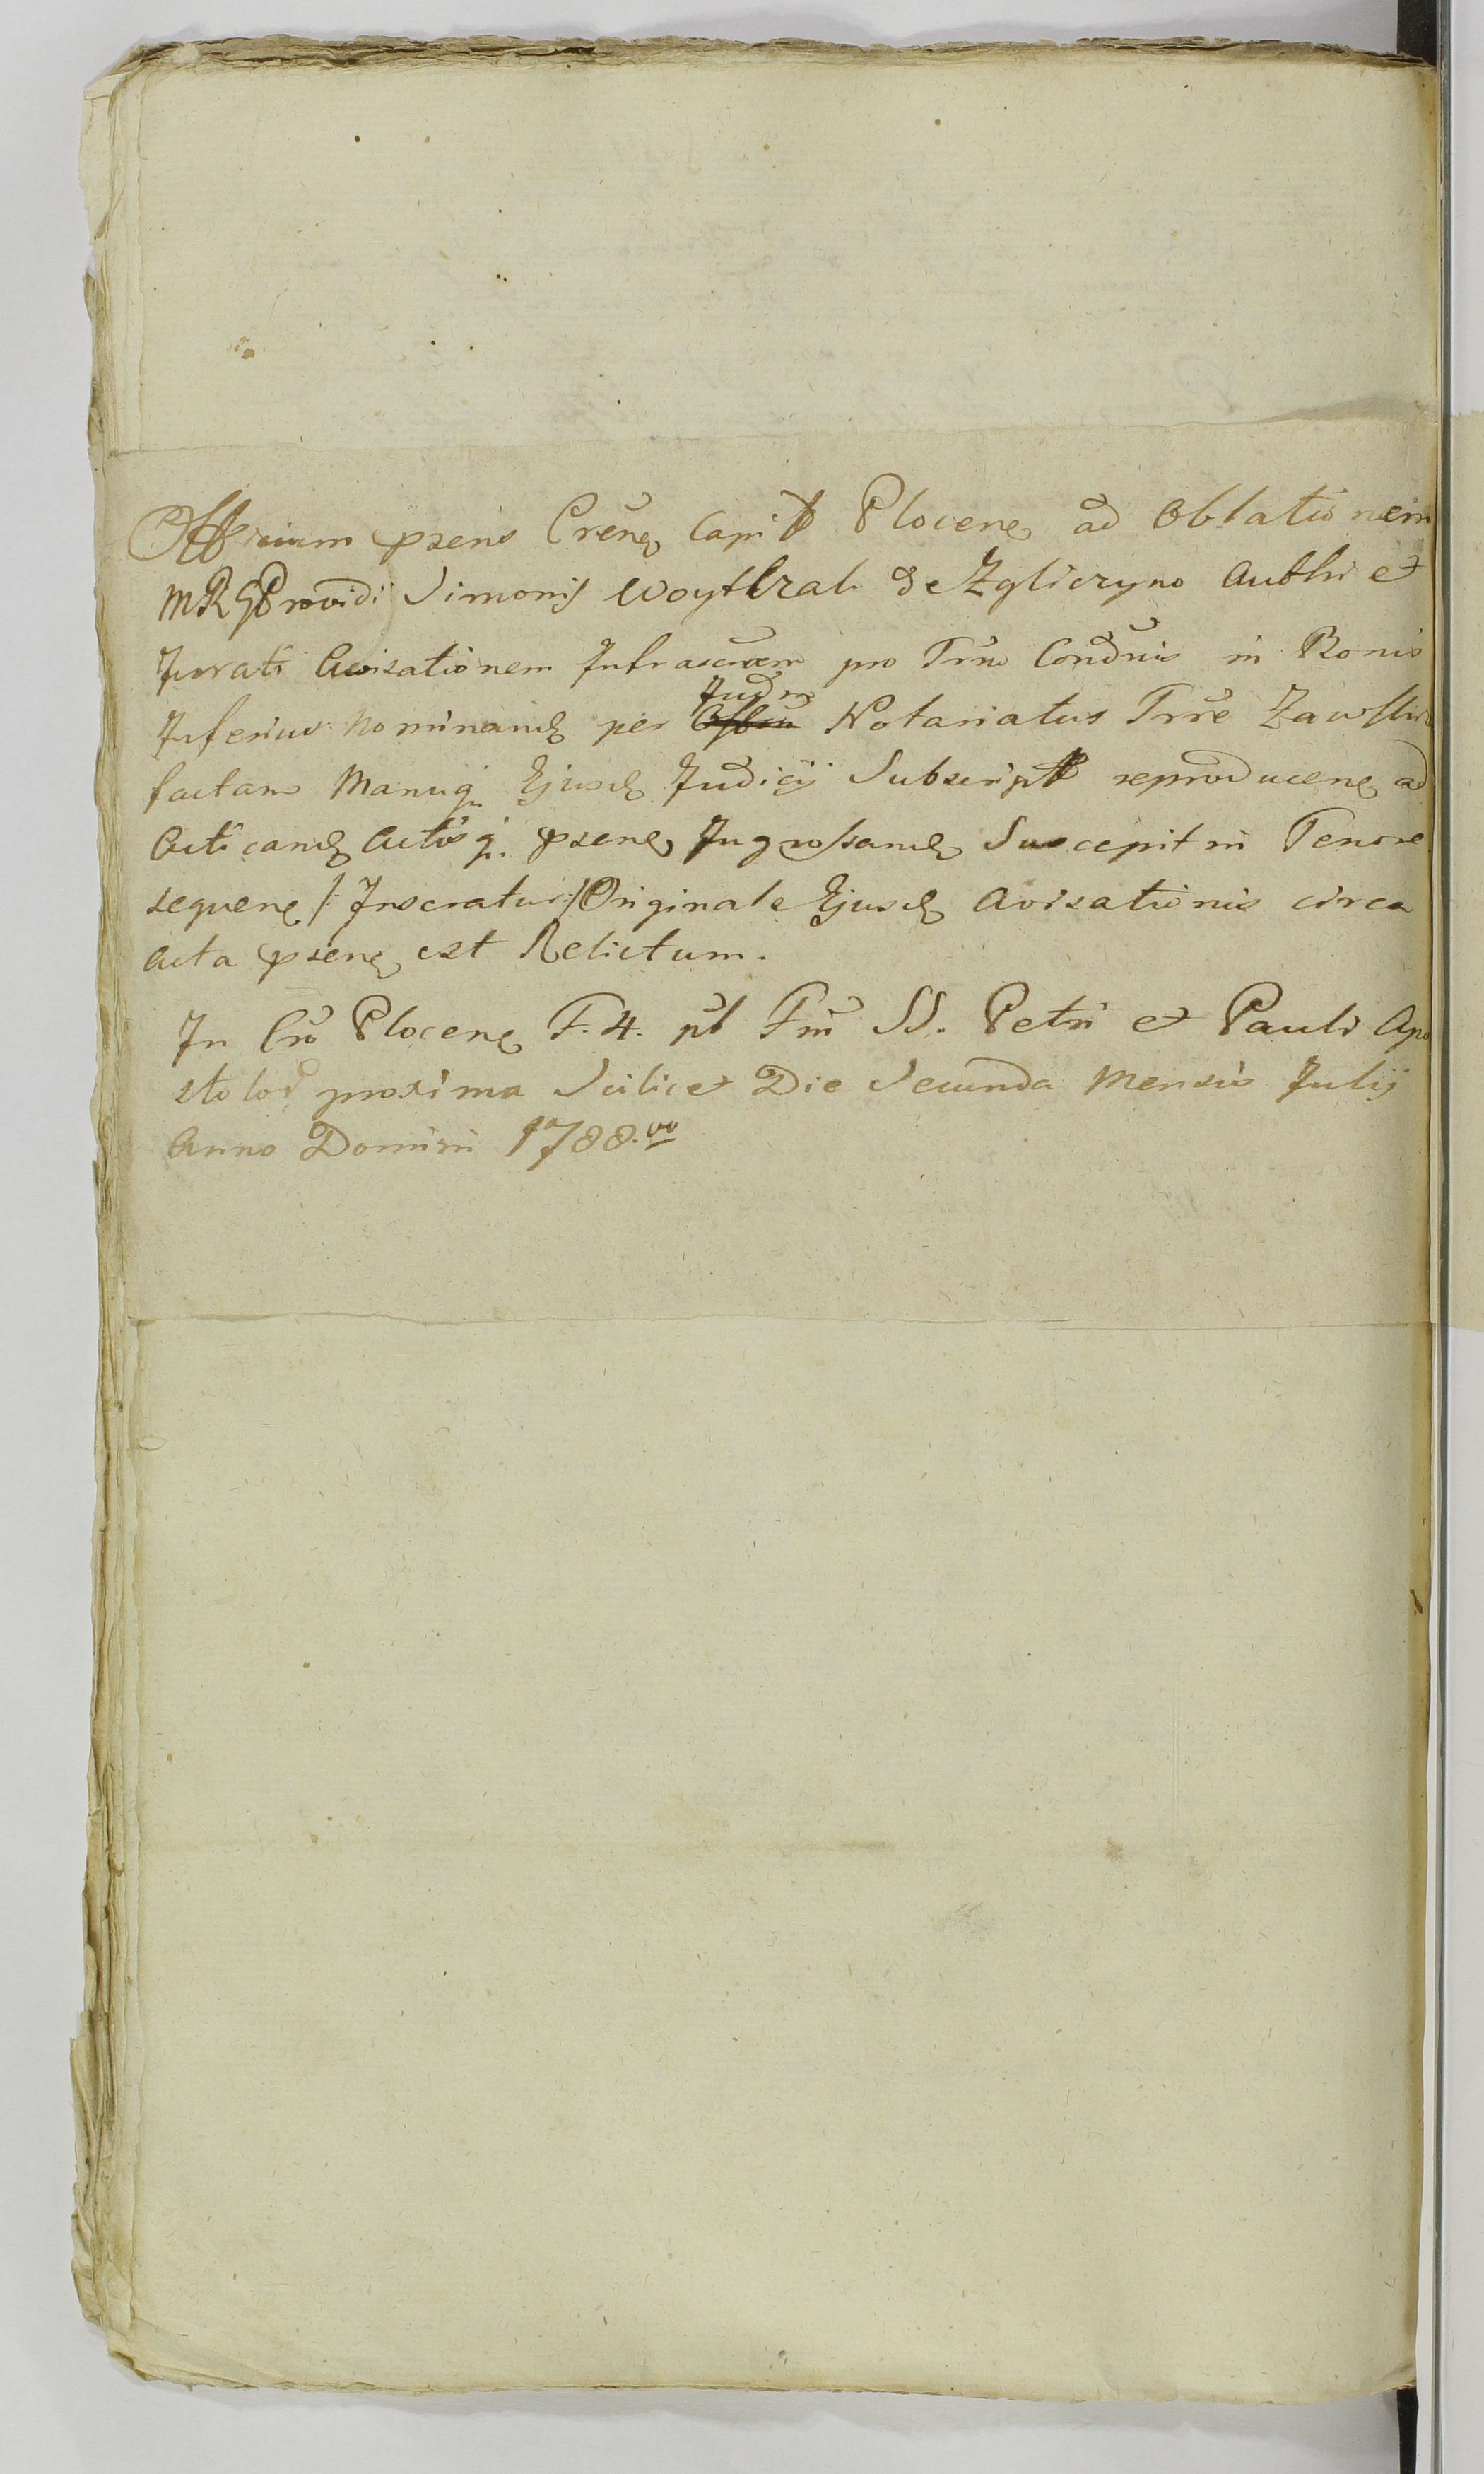 Officium psens Crēne Capit Plocene ad Oblationem
MRG Providi Simonis Woytkrah de Zgliczyno Authi et
Jurati Avisationem Infrascrem pro Trno Condnis in Bonis
Inferius Nominand per Judm Notariatus Trre Zawskr
factam Manuq Ejusd Judicij Subscript reproducene ad
Acticand Actisq. psene Ingrossand Suscepit in Tenore
sequene /: Inseratur :/ Originale Ejusd Avisationis circa
Acta psene est Relictum.
In Cro Plocene F. 4. pt Fm SS. Petri et Pauli Apo
stolor proxima Scilicet Die Secunda Mensis Julij
Anno Domini 1788.vo